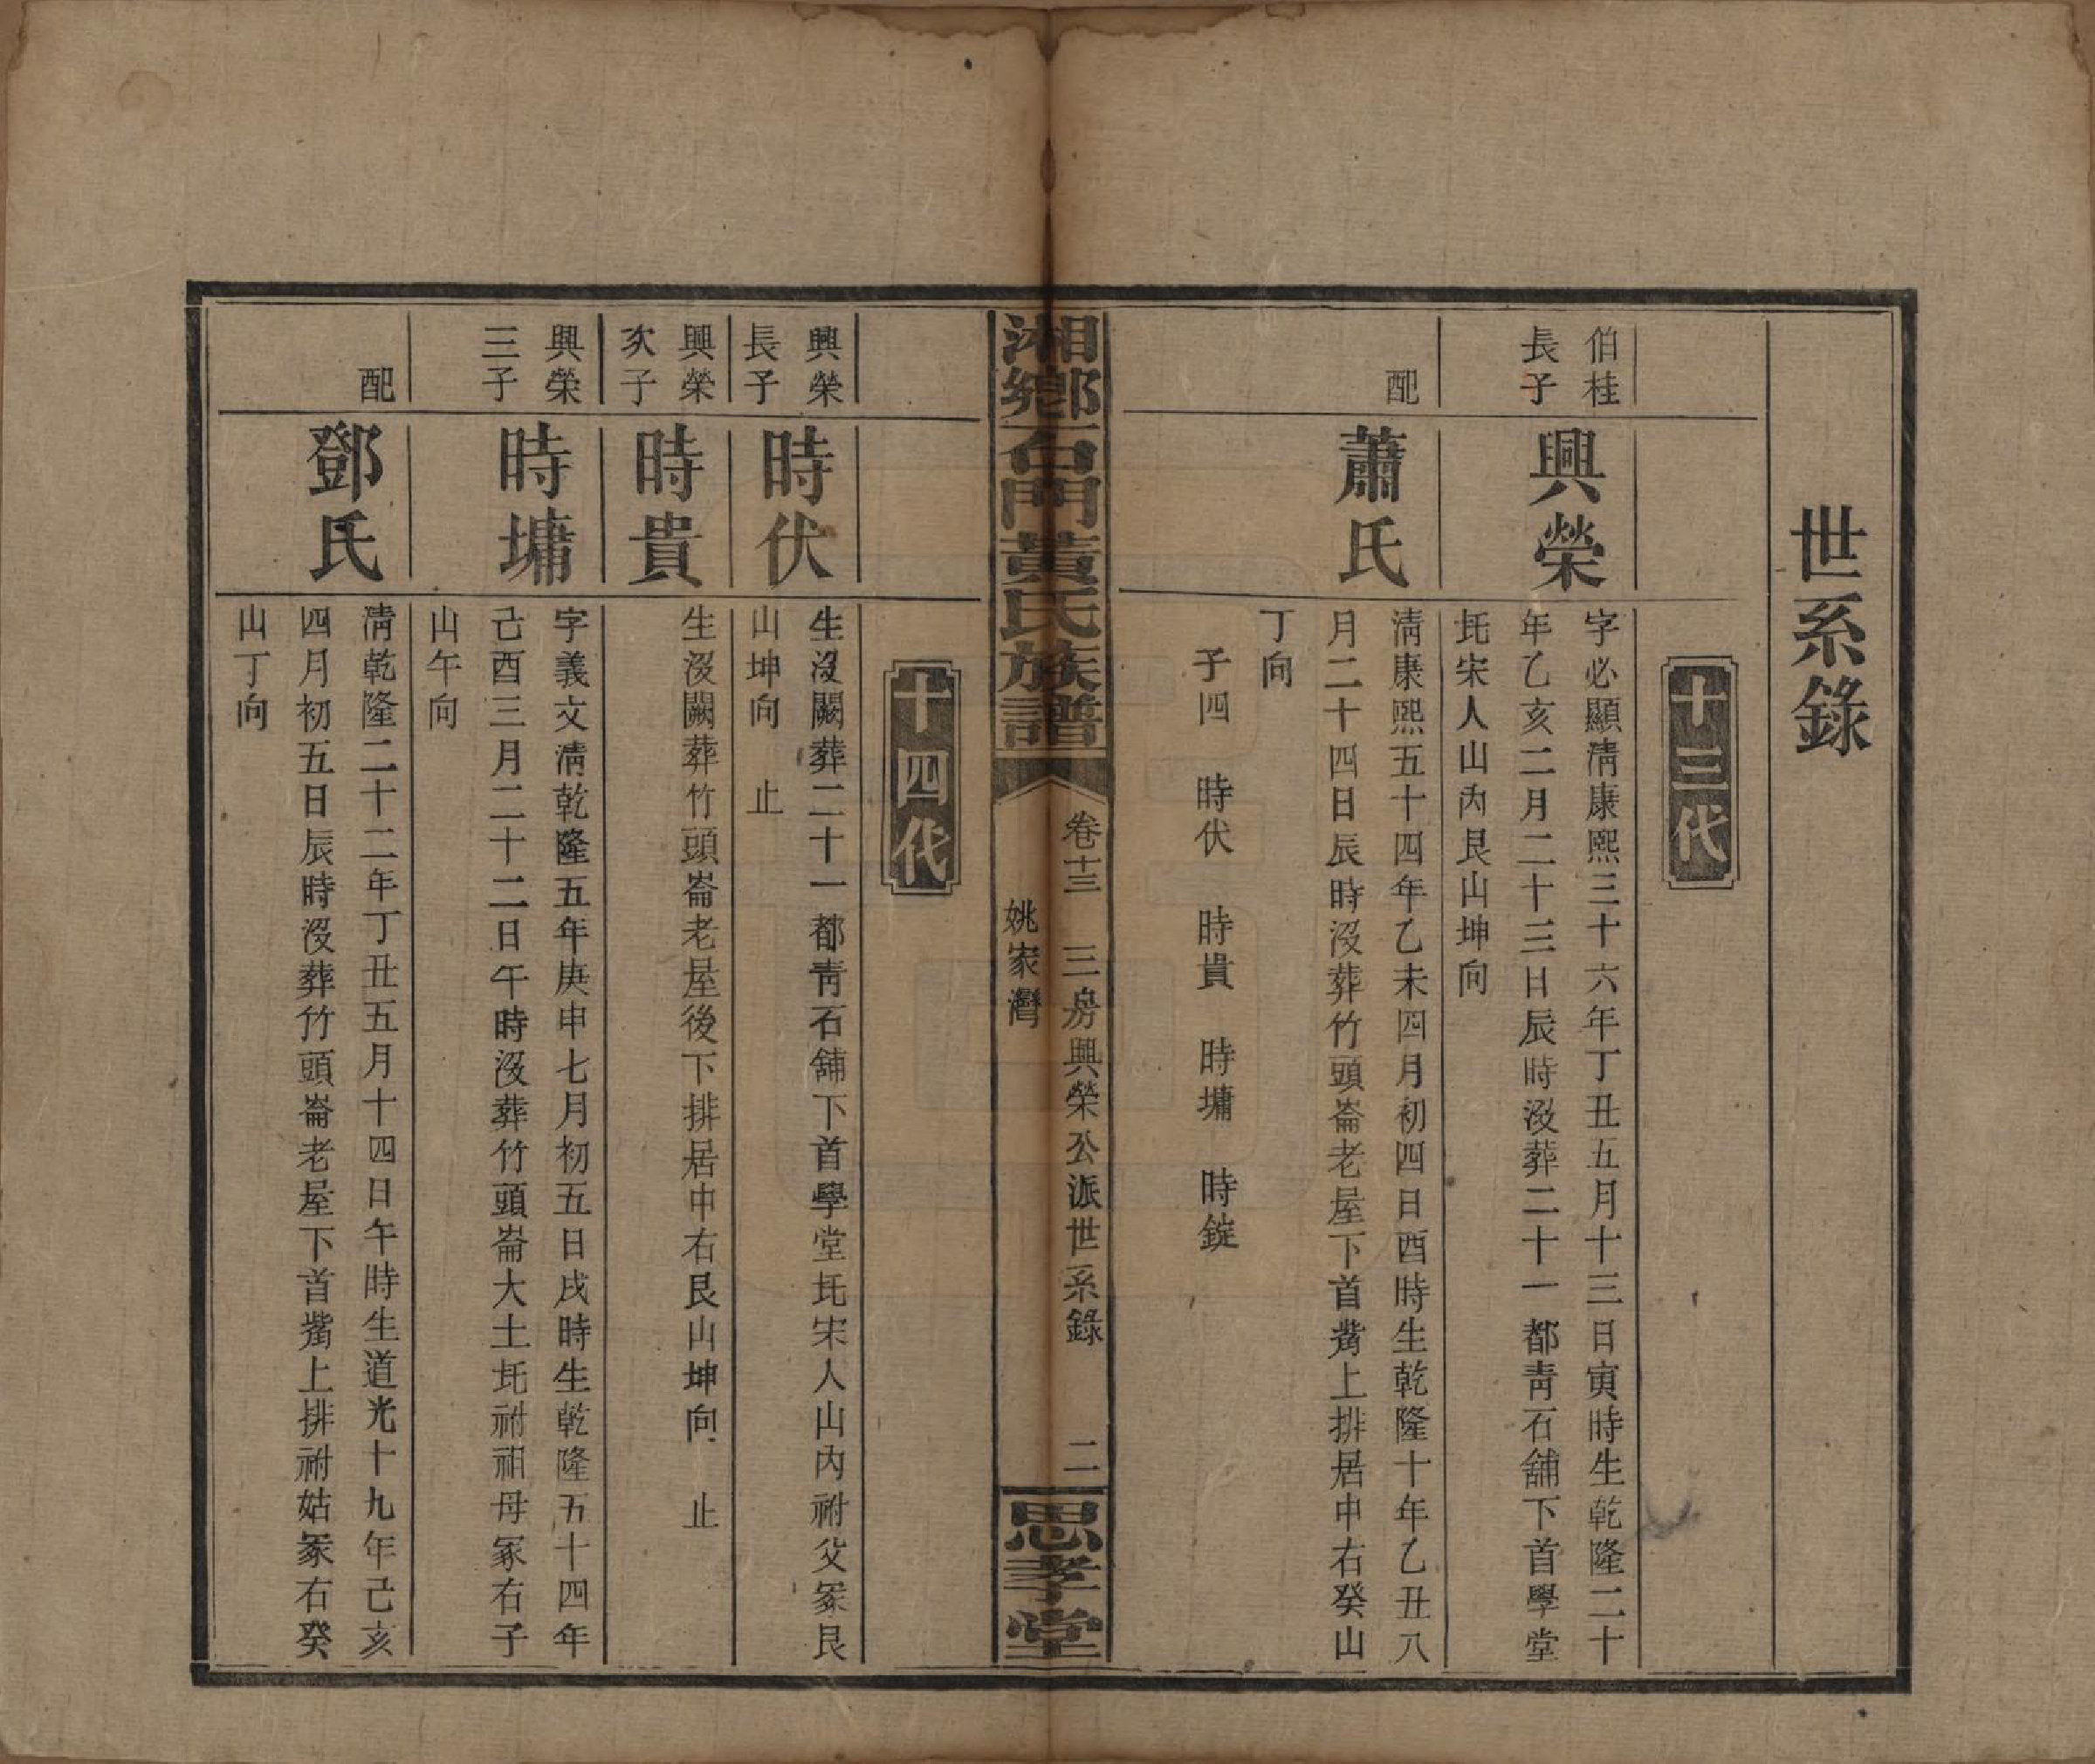 世系錄
十三代
伯桂
長子
興榮
字必顯清康熙三十六年丁丑五月十三日寅時生乾隆二十
年乙亥二月二十三日辰時沒葬二十一都靑石舖下首學堂
坉宋人山內艮山坤向
配
蕭氏
清康熙五十四年乙未四月初四日酉時生乾隆十年乙丑八
月二十四日辰時沒葬竹頭崙老屋下首嵴上排居中右癸山
丁向
子四 時伏 時貴 時墉 時錠
湘鄉石門黃氏族譜
卷十三 三房興榮公派世系錄 二
姚家灣
思孝堂
十四代
興榮
長子
時伏
生沒闕葬二十一都靑石舖下首學堂坉宋人山內祔父冢艮
山坤向 止
興榮
次子
時貴
生沒闕葬竹頭崙老屋後下排居中右艮山坤向 止
興榮
三子
時墉
字義文清乾隆五年庚申七月初五日戌時生乾隆五十四年
己酉三月二十二日午時沒葬竹頭崙大土坉祔祖母冢右子
山午向
配
鄧氏
清乾隆二十二年丁丑五月十四日午時生道光十九年己亥
四月初五日辰時沒葬竹頭崙老屋下首嵴上排祔姑冢右癸
山丁向